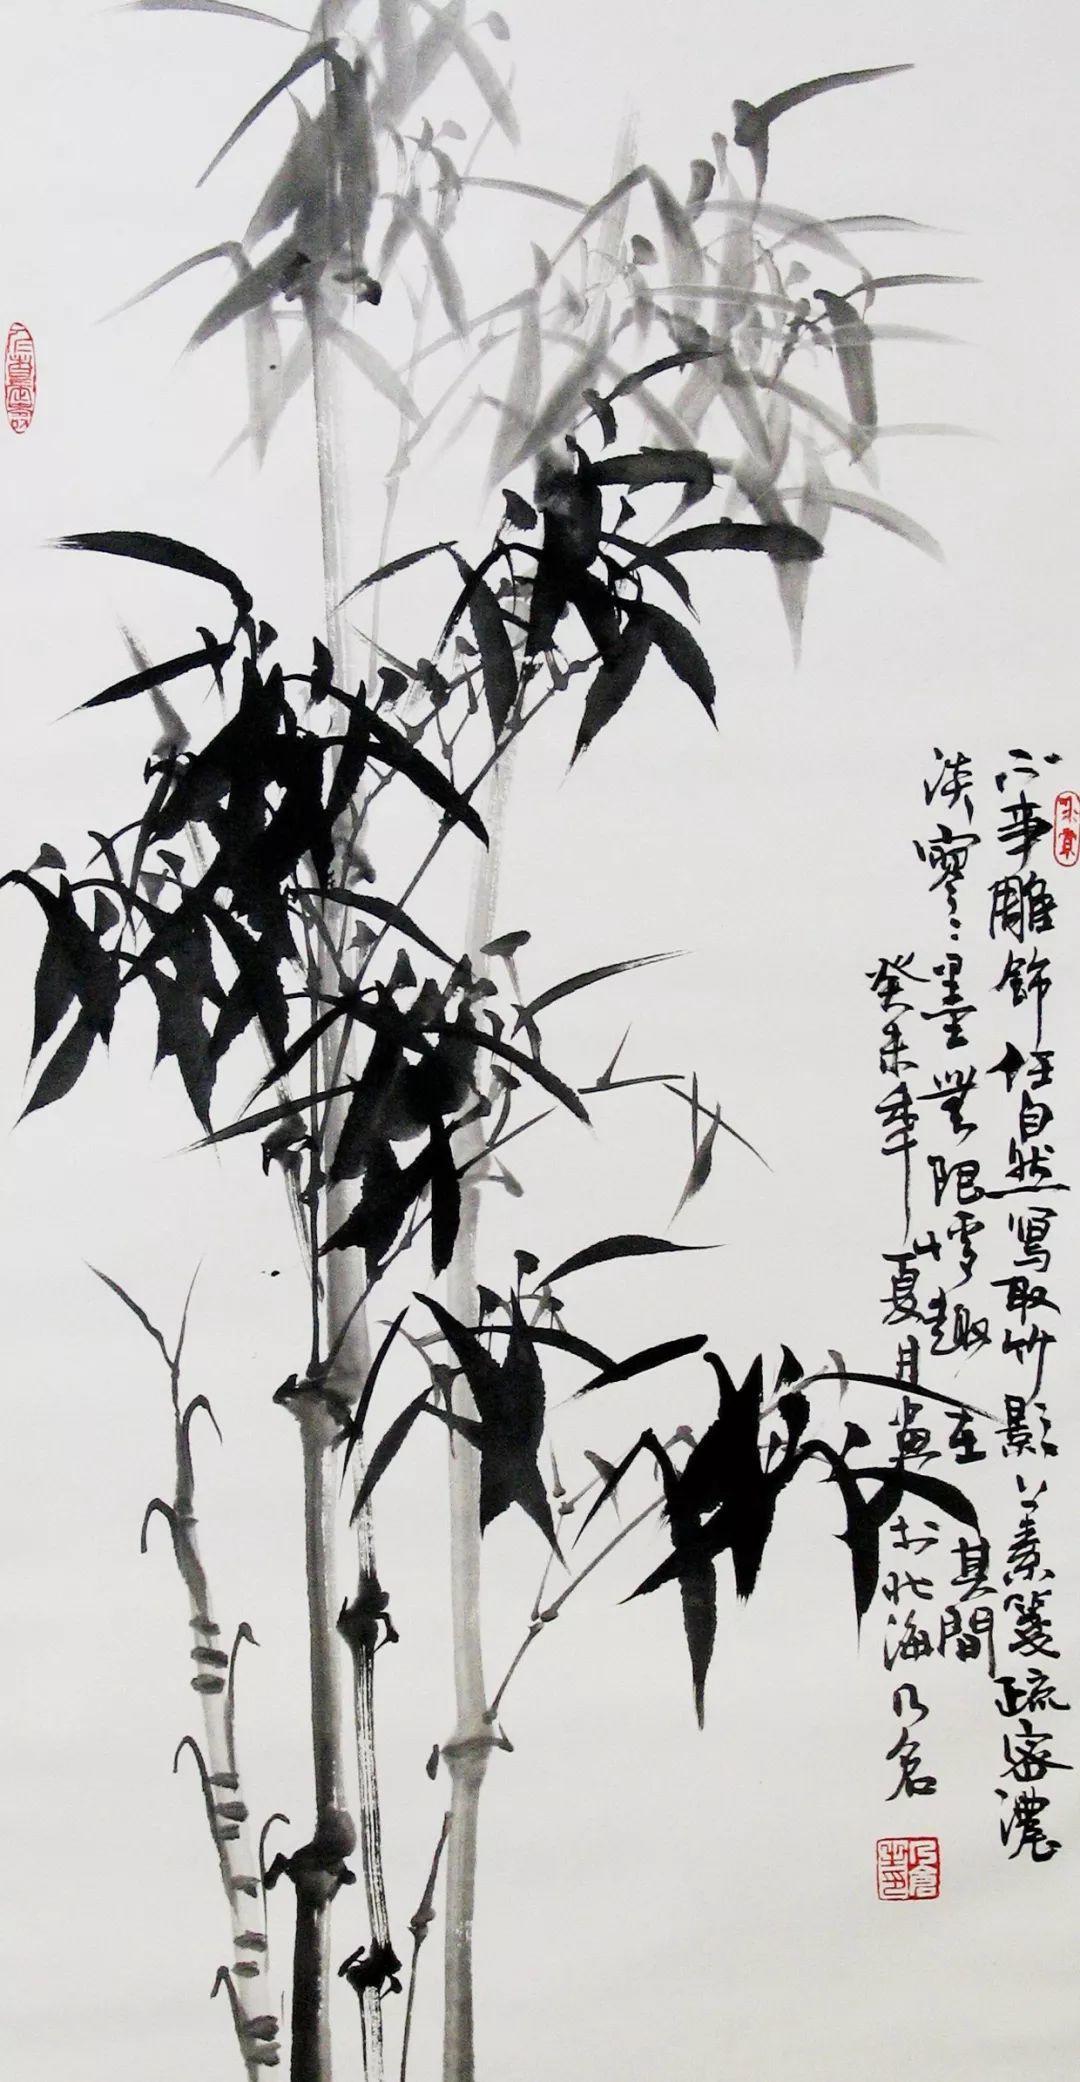 不事雕飾任自然寫取竹影入素箋疏密濃
淡寥〻墨無限情趣在其間
癸未年夏月畫於北海乃倉
乃倉之印